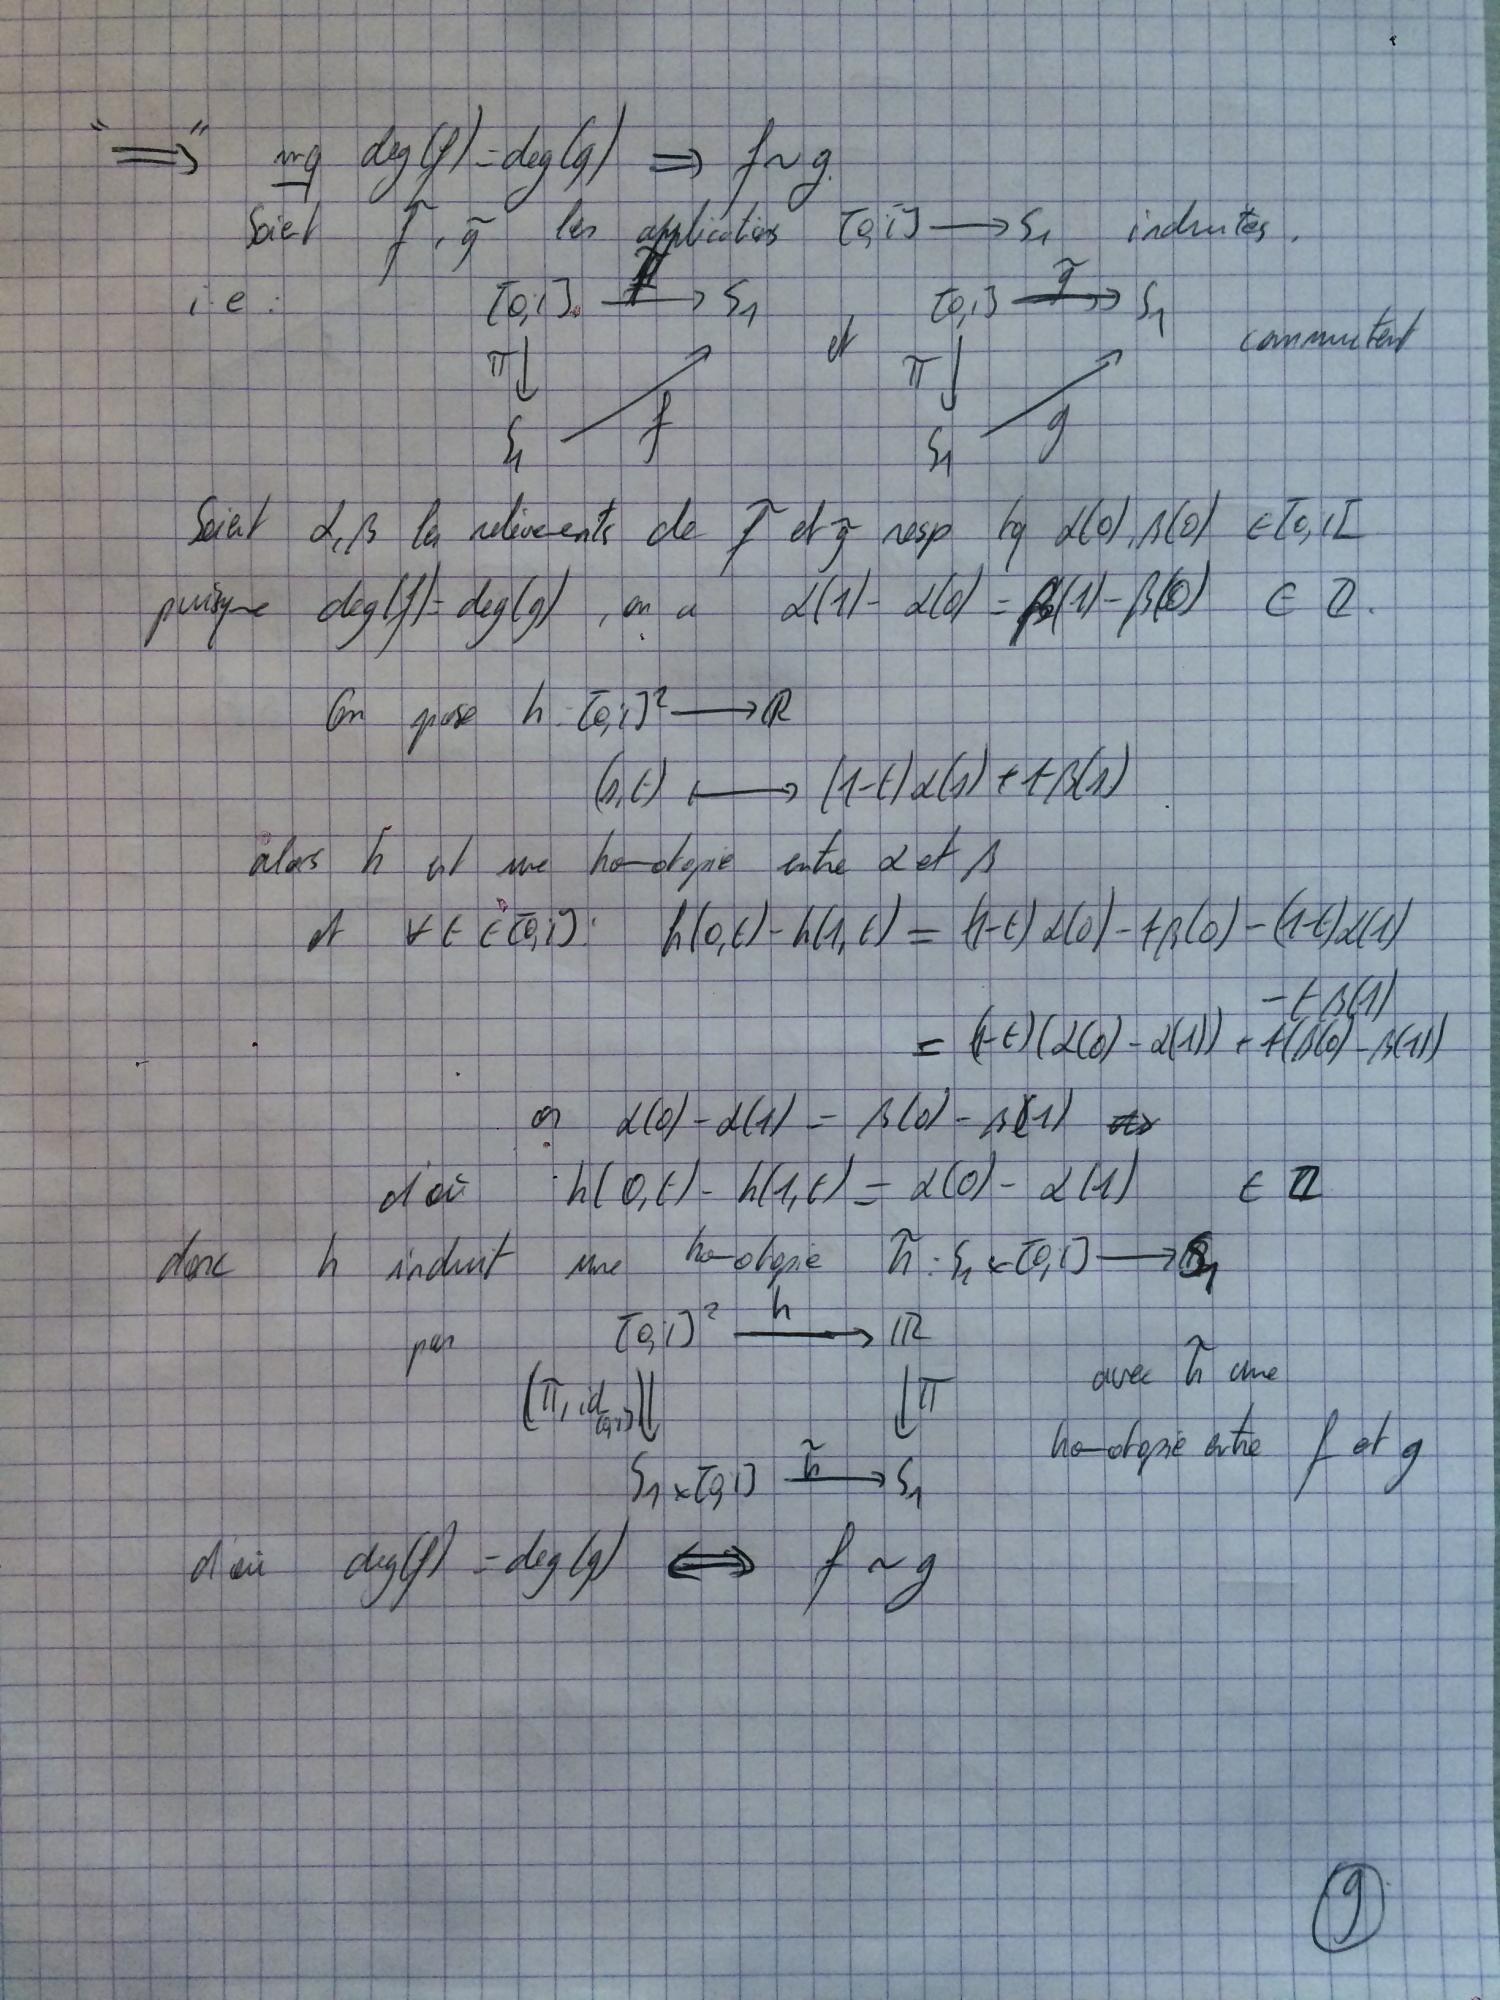 "⟹" mq deg(f) = deg(g) ⟹ f ~ g.
Soient f̃, g̃ les applications [0,1] ⟶ S₁ induites.
i.e : [0,1] ⟶ S₁ et [0,1] ⟶ S₁ commutent
f̃ g̃
π ↓ π ↓
S₁ ↗ f S₁ ↗ g
Soient α, β les relèvements de f̃ et g̃ resp tq α(0), β(0) ∈ [0,1[
puisque deg(f) = deg(g), on a α(1) - α(0) = β(1) - β(0) ∈ ℤ.
On pose h : [0,1]² ⟶ ℝ
(s,t) ⟼ (1-t)α(s) + tβ(s)
alors h est une homotopie entre α et β
et ∀t ∈ [0,1] : h(0,t) - h(1,t) = (1-t)α(0) - tβ(0) - (1-t)α(1)
- tβ(1)
= (1-t)(α(0) - α(1)) + t(β(0) - β(1))
or α(0) - α(1) = β(0) - β(1)
d'où h(0,t) - h(1,t) = α(0) - α(1) ∈ ℤ
donc h induit une homotopie h̃ : S₁ × [0,1] ⟶ S₁
par [0,1]² ⟶ ℝ
h
(π, id[0,1]) ↓ ↓ π avec h̃ une
homotopie entre f et g
S₁ × [0,1] ⟶ S₁
h̃
d'où deg(f) = deg(g) ⟺ f ~ g
9